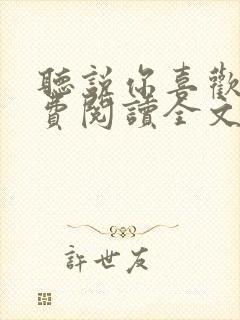 聽說你喜歡
費閱讀全文
許世友